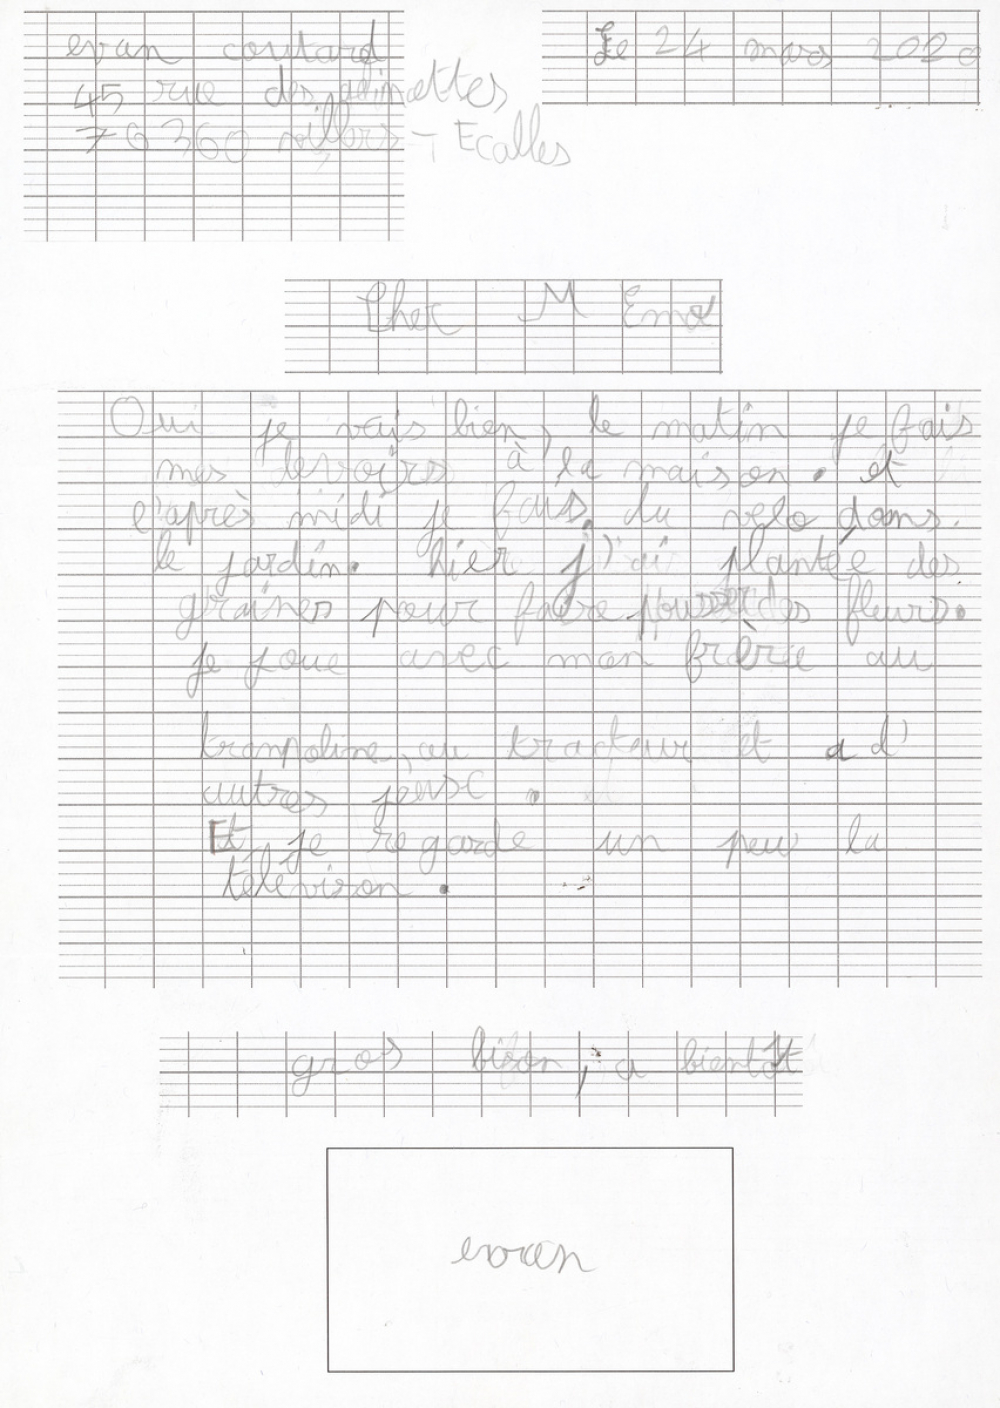 evan coutard
Le 24 mars 2020
45 rue des
76360 villers - Ecalles
Cher M
Oui je vais bien, le matin je fais
mes devoirs à la maison. et
l'après midi je fais du velo dans
le jardin. hier j'ai plantée des
graines pour faire pousser des fleurs.
je joue avec mon frère au
tranpoline, au tracteur et a d'
autres jeux.
Et je regarde un peu la
télévison.
gros , a bientôt
evan